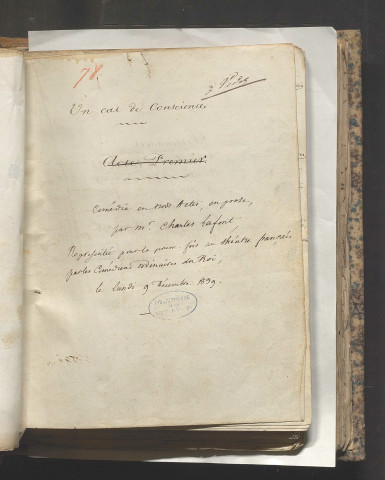 78.
Un cas de Conscience
Acte Premier
Comédie en trois Actes, en prose,
par Mr. Charles Lafont
Représentée pour la prem. fois au théâtre français
par les Comédiens ordinaires du Roi,
le lundi 9 décembre 1839.